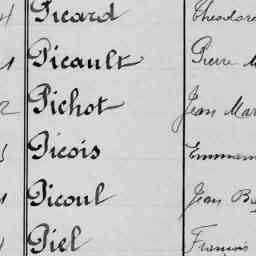 Picard Theodor
Picault Pierre M
Pichot Jean Mar
Picois Emman
Picoul Jean Ba
Piel François